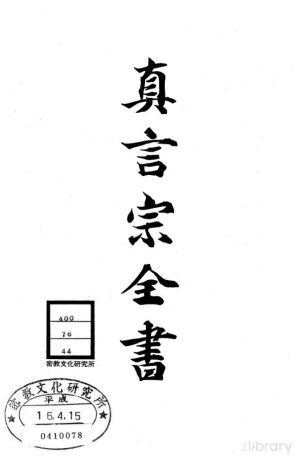 真言宗全書
400
76
44
密教文化研究所
密教文化研究所
平成
16.4.15
0410078
zlibrary